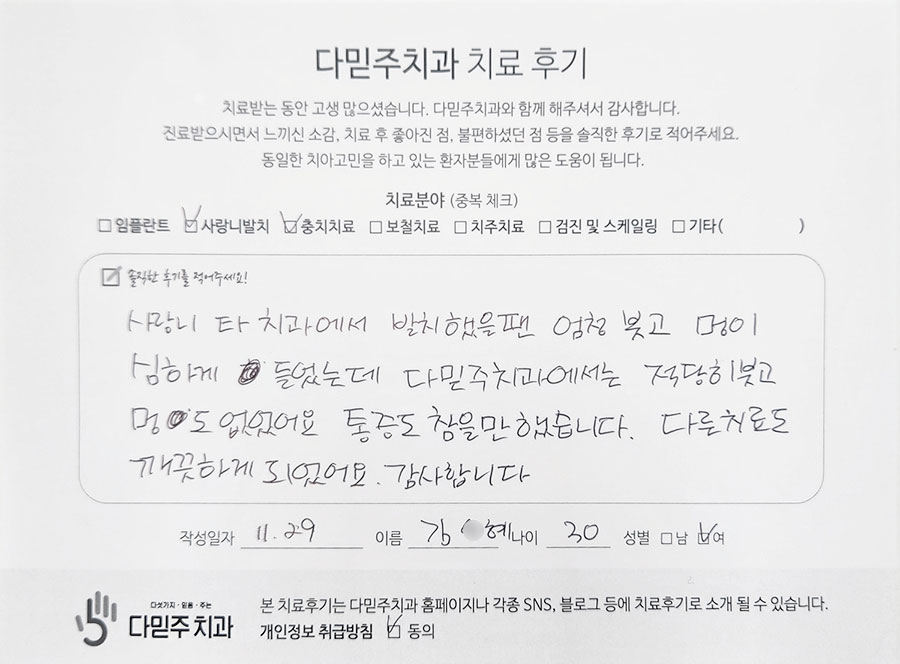 다믿주치과 치료 후기
치료받는 동안 고생 많으셨습니다. 다믿주치과와 함께 해주셔서 감사합니다.
진료받으시면서 느끼신 소감, 치료 후 좋아진 점, 불편하셨던 점 등을 솔직한 후기로 적어주세요.
동일한 치아고민을 하고 있는 환자분들에게 많은 도움이 됩니다.
치료분야 (중복 체크)
□ 임플란트 ☑ 사랑니발치 ☑ 충치치료 □ 보철치료 □ 치주치료 □ 검진 및 스케일링 □ 기타( )
☑ 솔직한 후기를 적어주세요!
사랑니 타 치과에서 발치했을땐 엄청 붓고 멍이
심하게 들었는데 다믿주치과에서는 적당히붓고
멍도 없었어요 통증도 참을만 했습니다. 다른치료도
깨끗하게 되었어요. 감사합니다
작성일자 11.29 이름 김 혜 나이 30 성별 □ 남 ☑ 여
다섯가지·믿음·주는
다믿주치과
본 치료후기는 다믿주치과 홈페이지나 각종 SNS, 블로그 등에 치료후기로 소개 될 수 있습니다.
개인정보 취급방침 ☑ 동의